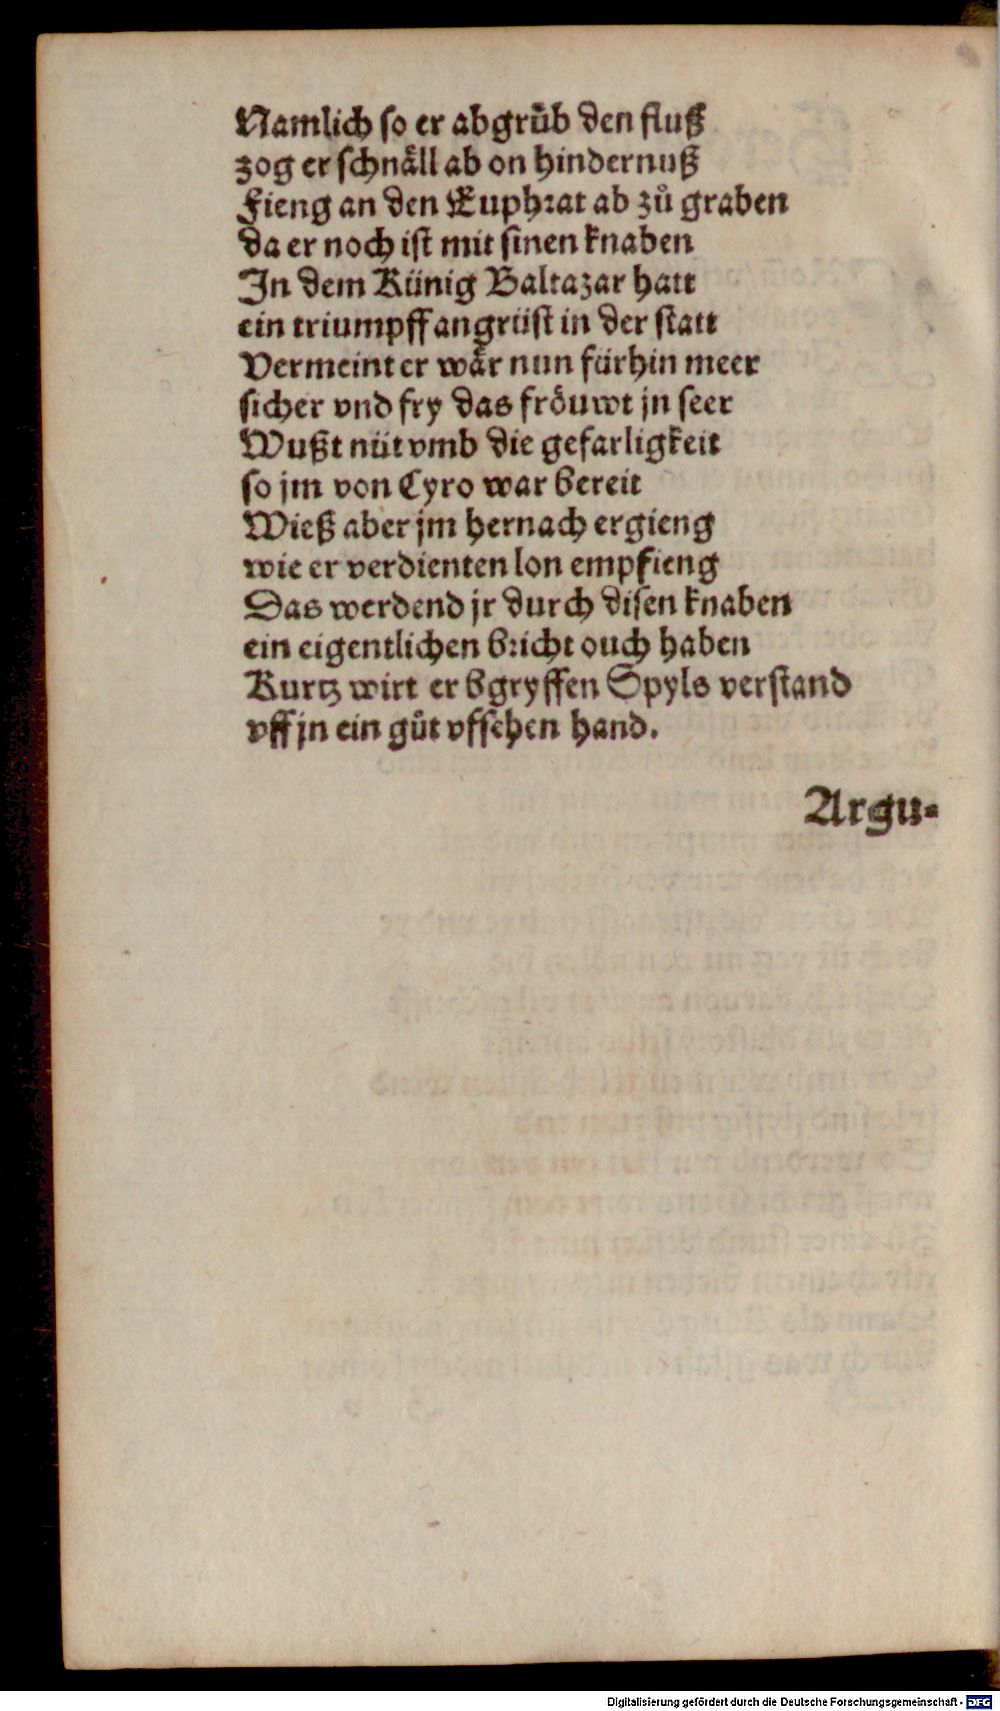 Namlich so er abgrůb den fluß
zog er schnäll ab on hindernuß
Fieng an den Euphrat ab zů graben
da er noch ist mit sinen knaben
In dem Künig Baltazar hatt
ein triumpff angrüst in der statt
Vermeint er wär nun fürhin meer
sicher vnd fry das fröuwt jn seer
Wußt nüt vmb die gefarligkeit
so jm von Cyro war bereit
Wieß aber jm hernach ergieng
wie er verdienten lon empfieng
Das werdend jr durch disen knaben
ein eigentlichen bricht ouch haben
Kurtz wirt er bgryffen Spyls verstand
vff jn ein gůt vfsehen hand.
Argu-
Digitalisierung gefördert durch die Deutsche Forschungsgemeinschaft - DFG